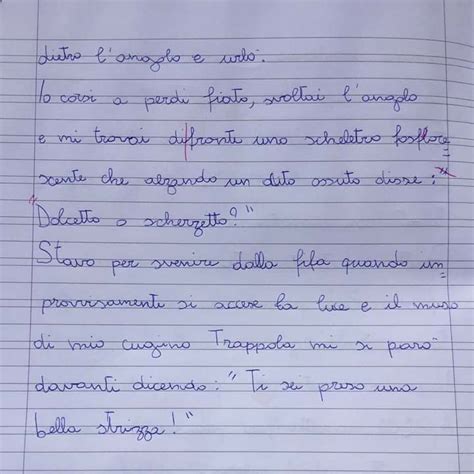 dietro l'angolo e urlò.
Io corsi a perdi fiato, svoltai l'angolo
e mi trovai difronti uno scheletro fosflore
scente che alzando un dito ossuto disse:
"Dolcetto o scherzetto?"
Stavo per svenire dalla fifa quando im
provvisamenti si accese la luce e il muso
di mio cugino Trappola mi si parò
davanti dicendo: "Ti sei preso una
bella strizza!"